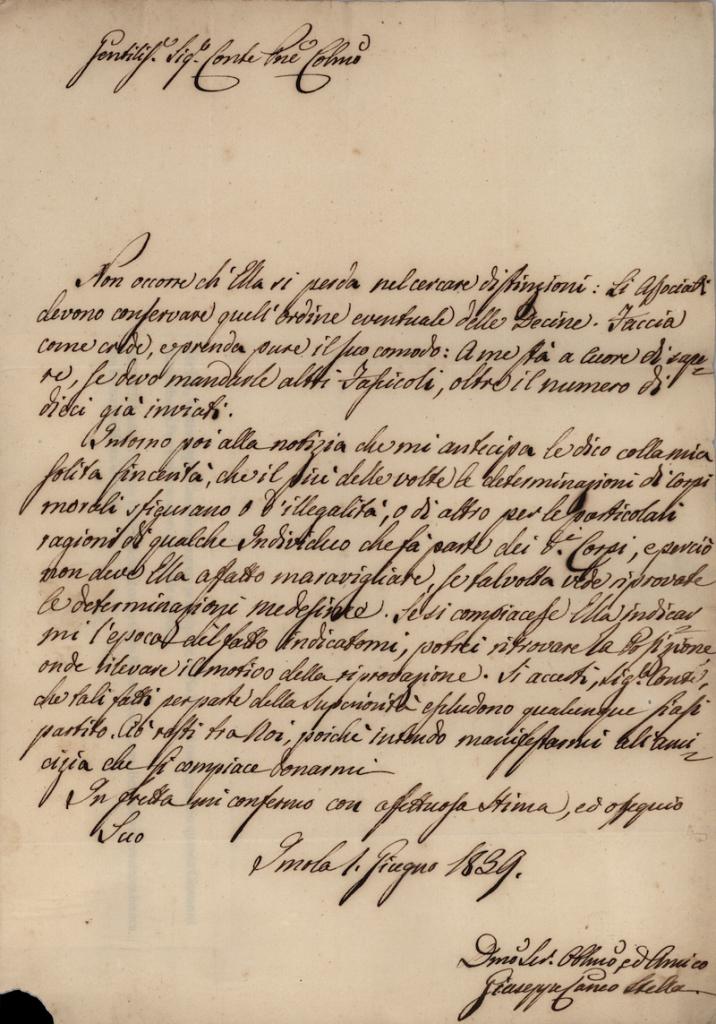 Gentilis.º Sig.r Conte Pne Colmo
Non occorre ch' Ella si perda nel cercare distinzioni: Li Associati
devono conservare quell' ordine eventuale delle Decine. Faccia
come crede, e prenda pure il suo comodo: A me stà a cuore di sape-
re, se devo mandarle altri Fascicoli, oltre il numero di
dieci già inviati.
Intorno poi alla notizia che mi antecipa le dico colla mia
solita sincerità, che il più delle volte le determinazioni di Corpi
morali sfigurano o d'illegalità, o di altro per le particolari
ragioni di qualche Individuo che fà parte dei d.i Corpi, e perciò
non deve Ella affatto maravigliare, se talvolta vede riprovate
le determinazioni medesime. Se si compiacesse Ella indicar
mi l'epoca del fatto indicatomi, potrei ritrovare la Posizione
onde rilevare il motivo della riprovazione. Si accerti, Sig.r Conte,
che tali fatti per parte della Superiorità escludono qualunque siasi
partito. Ciò resti tra Noi, poichè intendo manifestarmi all' ami-
cizia che si compiace donarmi
In fretta mi confermo con affettuosa stima, ed ossequio
Suo
Imola 1. Giugno 1839.
Dmo Ser. Obbmo, ed Amico
Giuseppe Stella